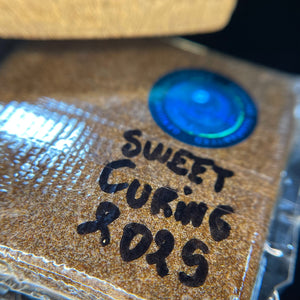 SWEET
CURING
2025